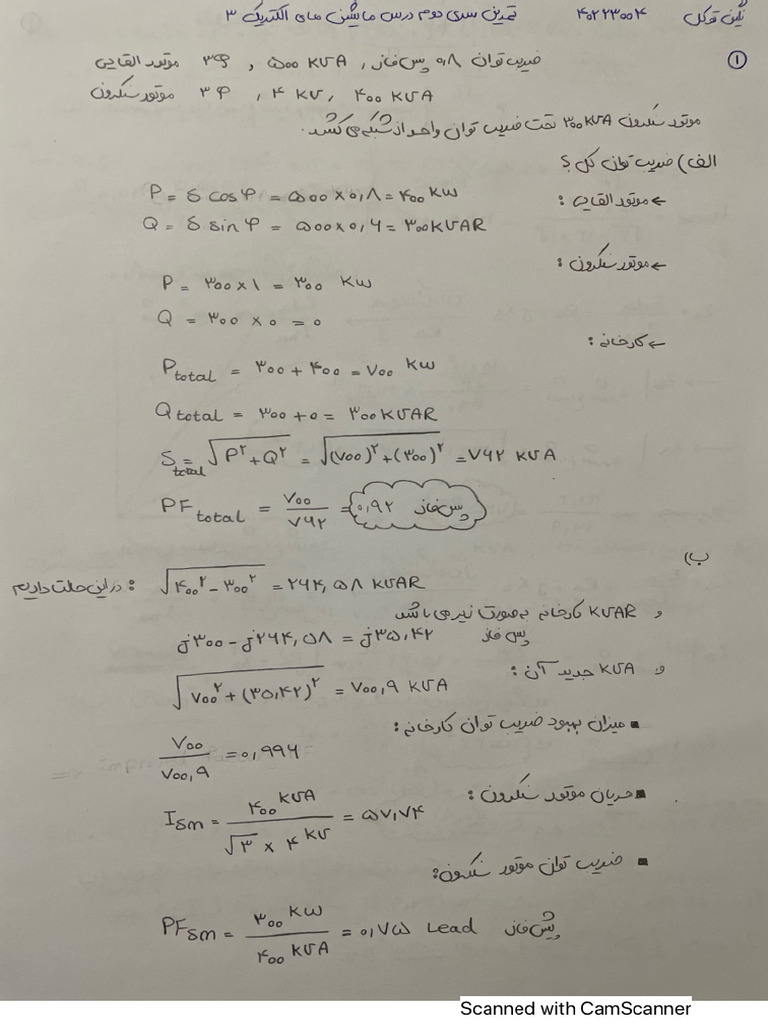 نگین توکل ۴۰۲۲۳۰۰۴ تمرین سری دوم درس ماشین های الکتریک ۳
①
ضریب توان ۰,۸ پس فاز , ۵۰۰ KVA , ۳φ موتور القایی
۴۰۰ KVA , ۴ KV , ۳φ موتور سنکرون
موتور سنکرون ۳۰۰ KVA تحت ضریب توان واحد از شبکه می کشد.
الف) ضریب توان کل ؟
← موتور القایی :
P = S cos φ = ۵۰۰ × ۰,۸ = ۴۰۰ KW
Q = S sin φ = ۵۰۰ × ۰,۶ = ۳۰۰ KVAR
← موتور سنکرون :
P = ۳۰۰ × ۱ = ۳۰۰ KW
Q = ۳۰۰ × ۰ = ۰
← کارخانه :
P total = ۳۰۰ + ۴۰۰ = ۷۰۰ KW
Q total = ۳۰۰ + ۰ = ۳۰۰ KVAR
S total = √(P² + Q²) = √((۷۰۰)² + (۳۰۰)²) = ۷۶۲ KVA
PF total = ۷۰۰ / ۷۶۲ = ۰,۹۲ پس فاز
ب)
در این حالت داریم : √(۴۰۰² - ۳۰۰²) = ۲۶۴,۵۸ KVAR
و KVAR کارخانه به صورت زیر می باشد
j۳۰۰ - j۲۶۴,۵۸ = j۳۵,۴۲ پس فاز
و KVA جدید آن :
√(۷۰۰² + (۳۵,۴۲)²) = ۷۰۰,۹ KVA
▪ میزان بهبود ضریب توان کارخانه :
۷۰۰ / ۷۰۰,۹ = ۰,۹۹۶
▪ جریان موتور سنکرون :
I sm = ۴۰۰ KVA / √۳ × ۴ KV = ۵۷,۷۴
▪ ضریب توان موتور سنکرون :
PF sm = ۳۰۰ KW / ۴۰۰ KVA = ۰,۷۵ Lead پیش فاز
Scanned with CamScanner